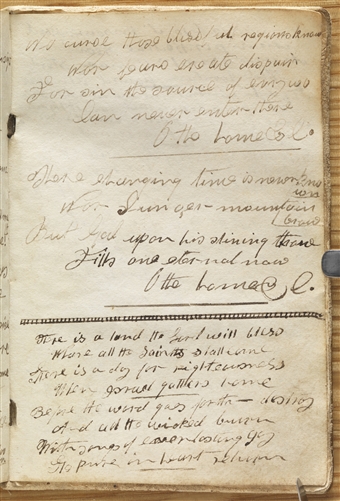 No curse those blessful regions know
Nor fears create dispair
For sin the source of
Can never enter there
O the home &c.
There changing time is never known
Nor Sun ger mountain brow
But God upon his shining throne
Fills one eternal now
O the home &c.
There is a land the Lord will bless
Where all the Saints shall come
There is a day for righteousness
When Israel gathers home
Before the word goes forth - destroy
And all the wicked burn
With songs of everlasting joy
The pure in heart return